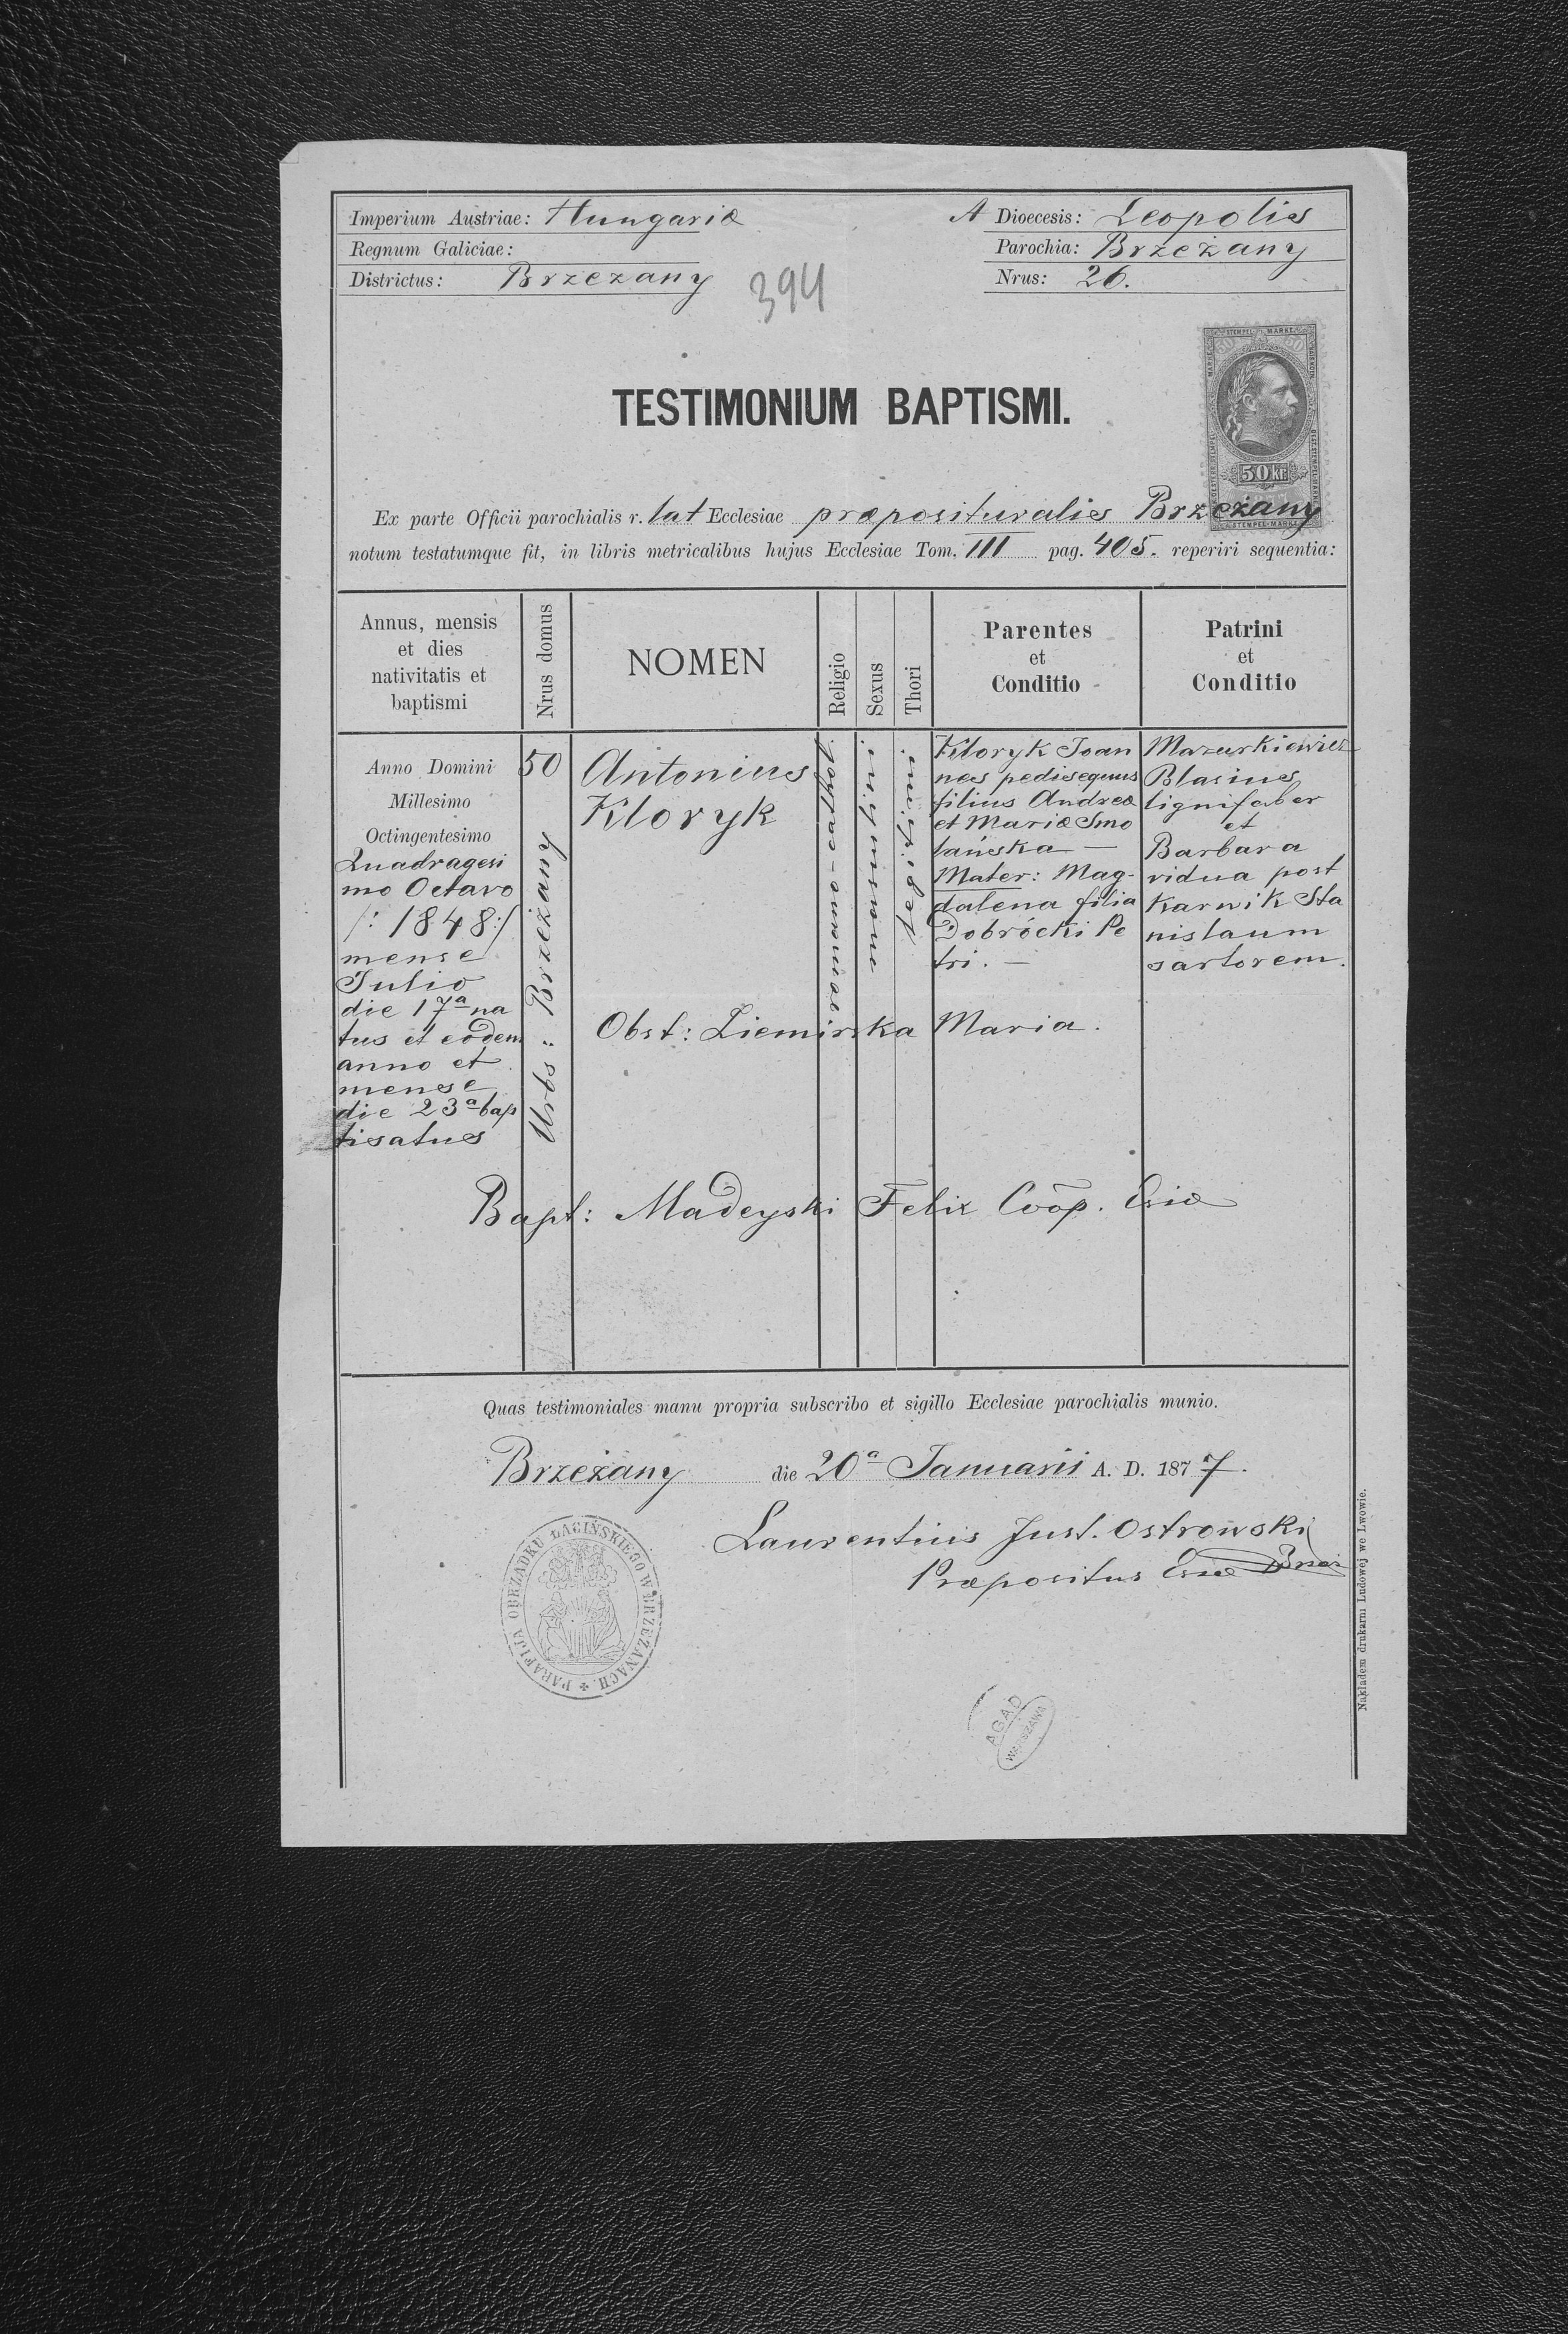 Imperium Austriae: Hungariæ
Regnum Galiciae:
Districtus: Brzezany
394
A Dioecesis: Leopolis
Parochia: Brzeżany
Nrus: 26.
STEMPEL-MARKE
50 kr
STEMPEL-MARKE
TESTIMONIUM BAPTISMI.
Ex parte Officii parochialis r. lat Ecclesiae præposituralis Brzeżany
notum testatumque fit, in libris metricalibus hujus Ecclesiae Tom. III pag. 405. reperiri sequentia:
Annus, mensis
et dies
nativitatis et
baptismi
Nrus domus
NOMEN
Religio
Sexus
Thori
Parentes
et
Conditio
Patrini
et
Conditio
Anno Domini
Millesimo
Octingentesimo
Quadragesi
mo Octavo
/: 1848 :/
mense
Julio
die 17ª na
tus et eodem
anno et
mense
die 23ª bap
tisatus
50
Urbs: Brzeżany
Antonius
Kloryk
Kloryk Joan
nes pedisequus
filius Andreæ
et Mariæ Smo
lańska —
Mater: Mag-
dalena filia
Dobrócki Pe
tri. —
Mazurkiewicz
Blasius
lignifaber
et
Barbara
vidua post
Karwik Sta
nislaum
sartorem.
Obst: Ziemirska Maria.
Bapt: Madeyski Felix Coop. Esiæ
Quas testimoniales manu propria subscribo et sigillo Ecclesiae parochialis munio.
Brzeżany die 20ª Januarii A. D. 1877.
Laurentius Just. Ostrowski
Præpositus Esiæ
PARAFIJA OBRZĄDKU ŁACIŃSKIEGO W BRZEŻANACH.
AGAD
WARSZAWA
Nakładem drukarni Ludowej we Lwowie.